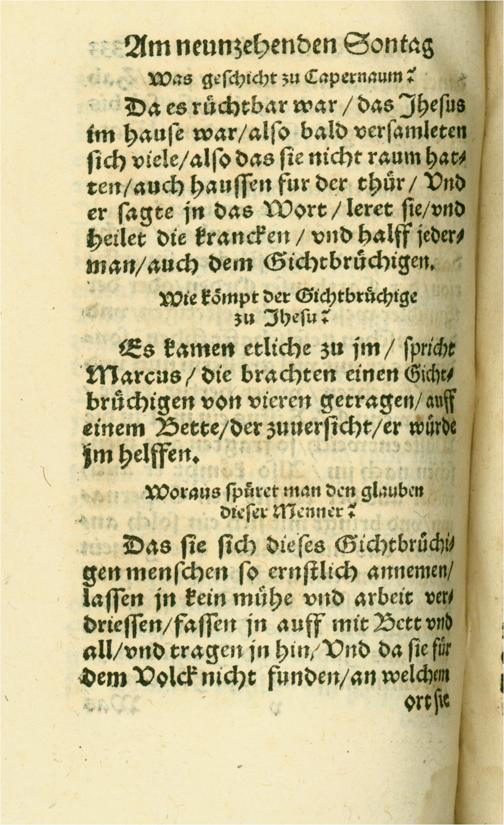 Am neunzehenden Sontag
Was geschicht zu Capernaum?
Da es rüchtbar war / das Jhesus
im hause war/also bald versamleten
sich viele/also das sie nicht raum hat⸗
ten/auch haussen fur der thür / Vnd
er sagte jn das Wort / leret sie/vnd
heilet die krancken / vnd halff jeder⸗
man/auch dem Gichtbrüchigen.
Wie kömpt der Gichtbrüchige
zu Jhesu?
Es kamen etliche zu jm / spricht
Marcus / die brachten einen Gicht⸗
brüchigen von vieren getragen/auff
einem Bette/der zuuersicht/er würde
jm helffen.
Woraus spüret man den glauben
dieser Menner?
Das sie sich dieses Gichtbrüchi⸗
gen menschen so ernstlich annemen/
lassen jn kein mühe vnd arbeit ver⸗
driessen/fassen jn auff mit Bett vnd
all/vnd tragen jn hin/ Vnd da sie für
dem Volck nicht funden/an welchem
ort sie